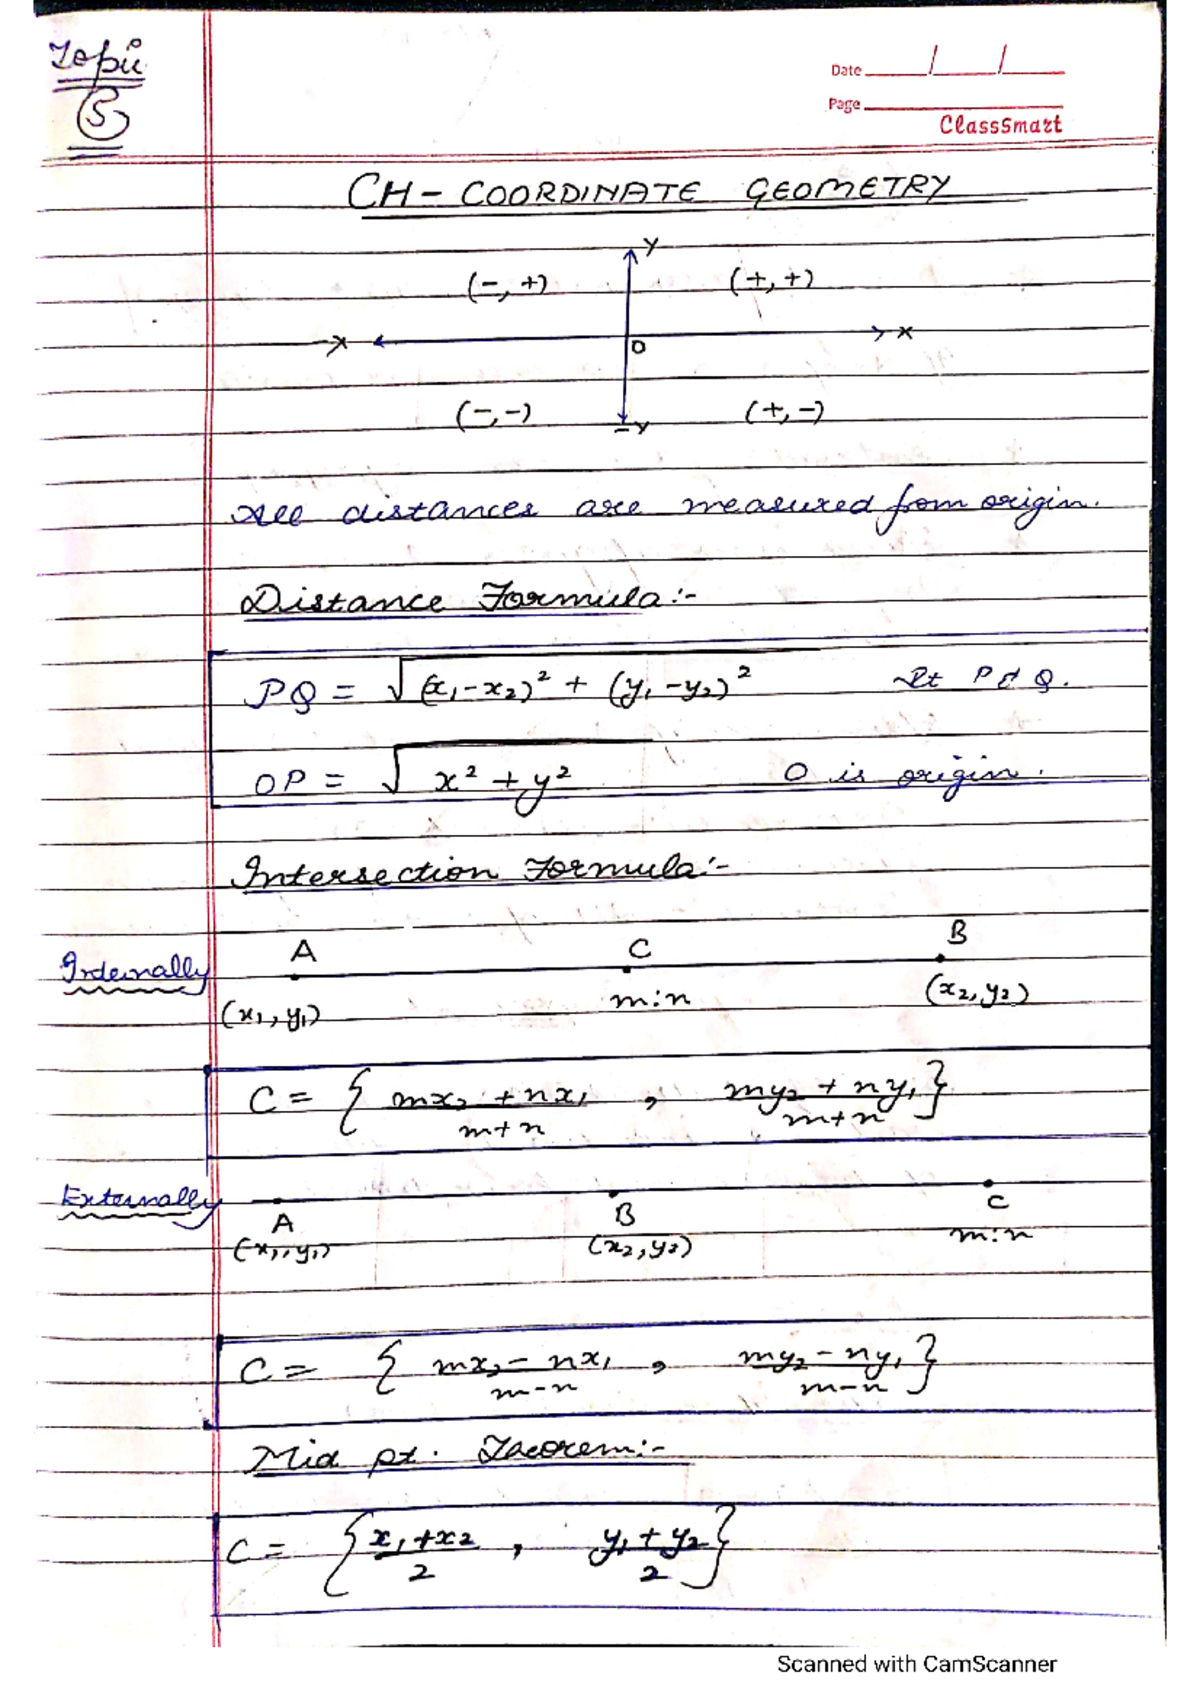 Topic
5
Date / /
Page
ClassSmart
CH - COORDINATE GEOMETRY
Y
(-, +) (+, +)
-X O X
(-, -) (+, -)
-Y
All distances are measured from origin.
Distance Formula:-
PQ = √(x₁-x₂)² + (y₁-y₂)² Pt P & Q.
OP = √x² + y² O is origin.
Intersection Formula:-
Internally A C B
(x₁, y₁) m:n (x₂, y₂)
C = { mx₂ + nx₁ / m+n , my₂ + ny₁ / m+n }
Externally A B C
(x₁, y₁) (x₂, y₂) m:n
C = { mx₂ - nx₁ / m-n , my₂ - ny₁ / m-n }
Mid pt. Theorem:-
C = { x₁+x₂ / 2 , y₁+y₂ / 2 }
Scanned with CamScanner